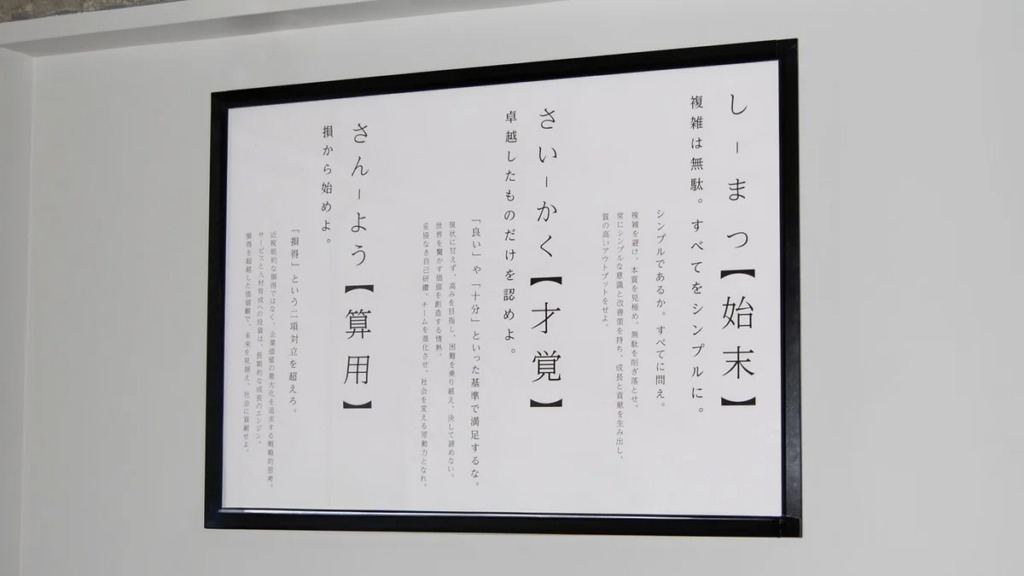 し－まつ【始末】
複雑は無駄。すべてをシンプルに。
シンプルであるか。すべてに問え。
複雑を避け、本質を見極め、無駄を削ぎ落とせ。
常にシンプルな意識と改善策を持ち、成長と貢献を生み出し、
質の高いアウトプットをせよ。
さい－かく【才覚】
卓越したものだけを認めよ。
「良い」や「十分」といった基準で満足するな。
現状に甘えず、高みを目指し、困難を乗り越え、決して諦めない。
世界を驚かす価値を創造する情熱。
妥協なき自己研鑽、チームを進化させ、社会を変える原動力となれ。
さん－よう【算用】
損から始めよ。
「損得」という二項対立を超えろ。
近視眼的な損得ではなく、企業価値の最大化を追求する戦略的思考。
サービスと人材育成への投資は、長期的な成長のエンジン。
損得を超越した価値観で、未来を見据え、社会に貢献せよ。